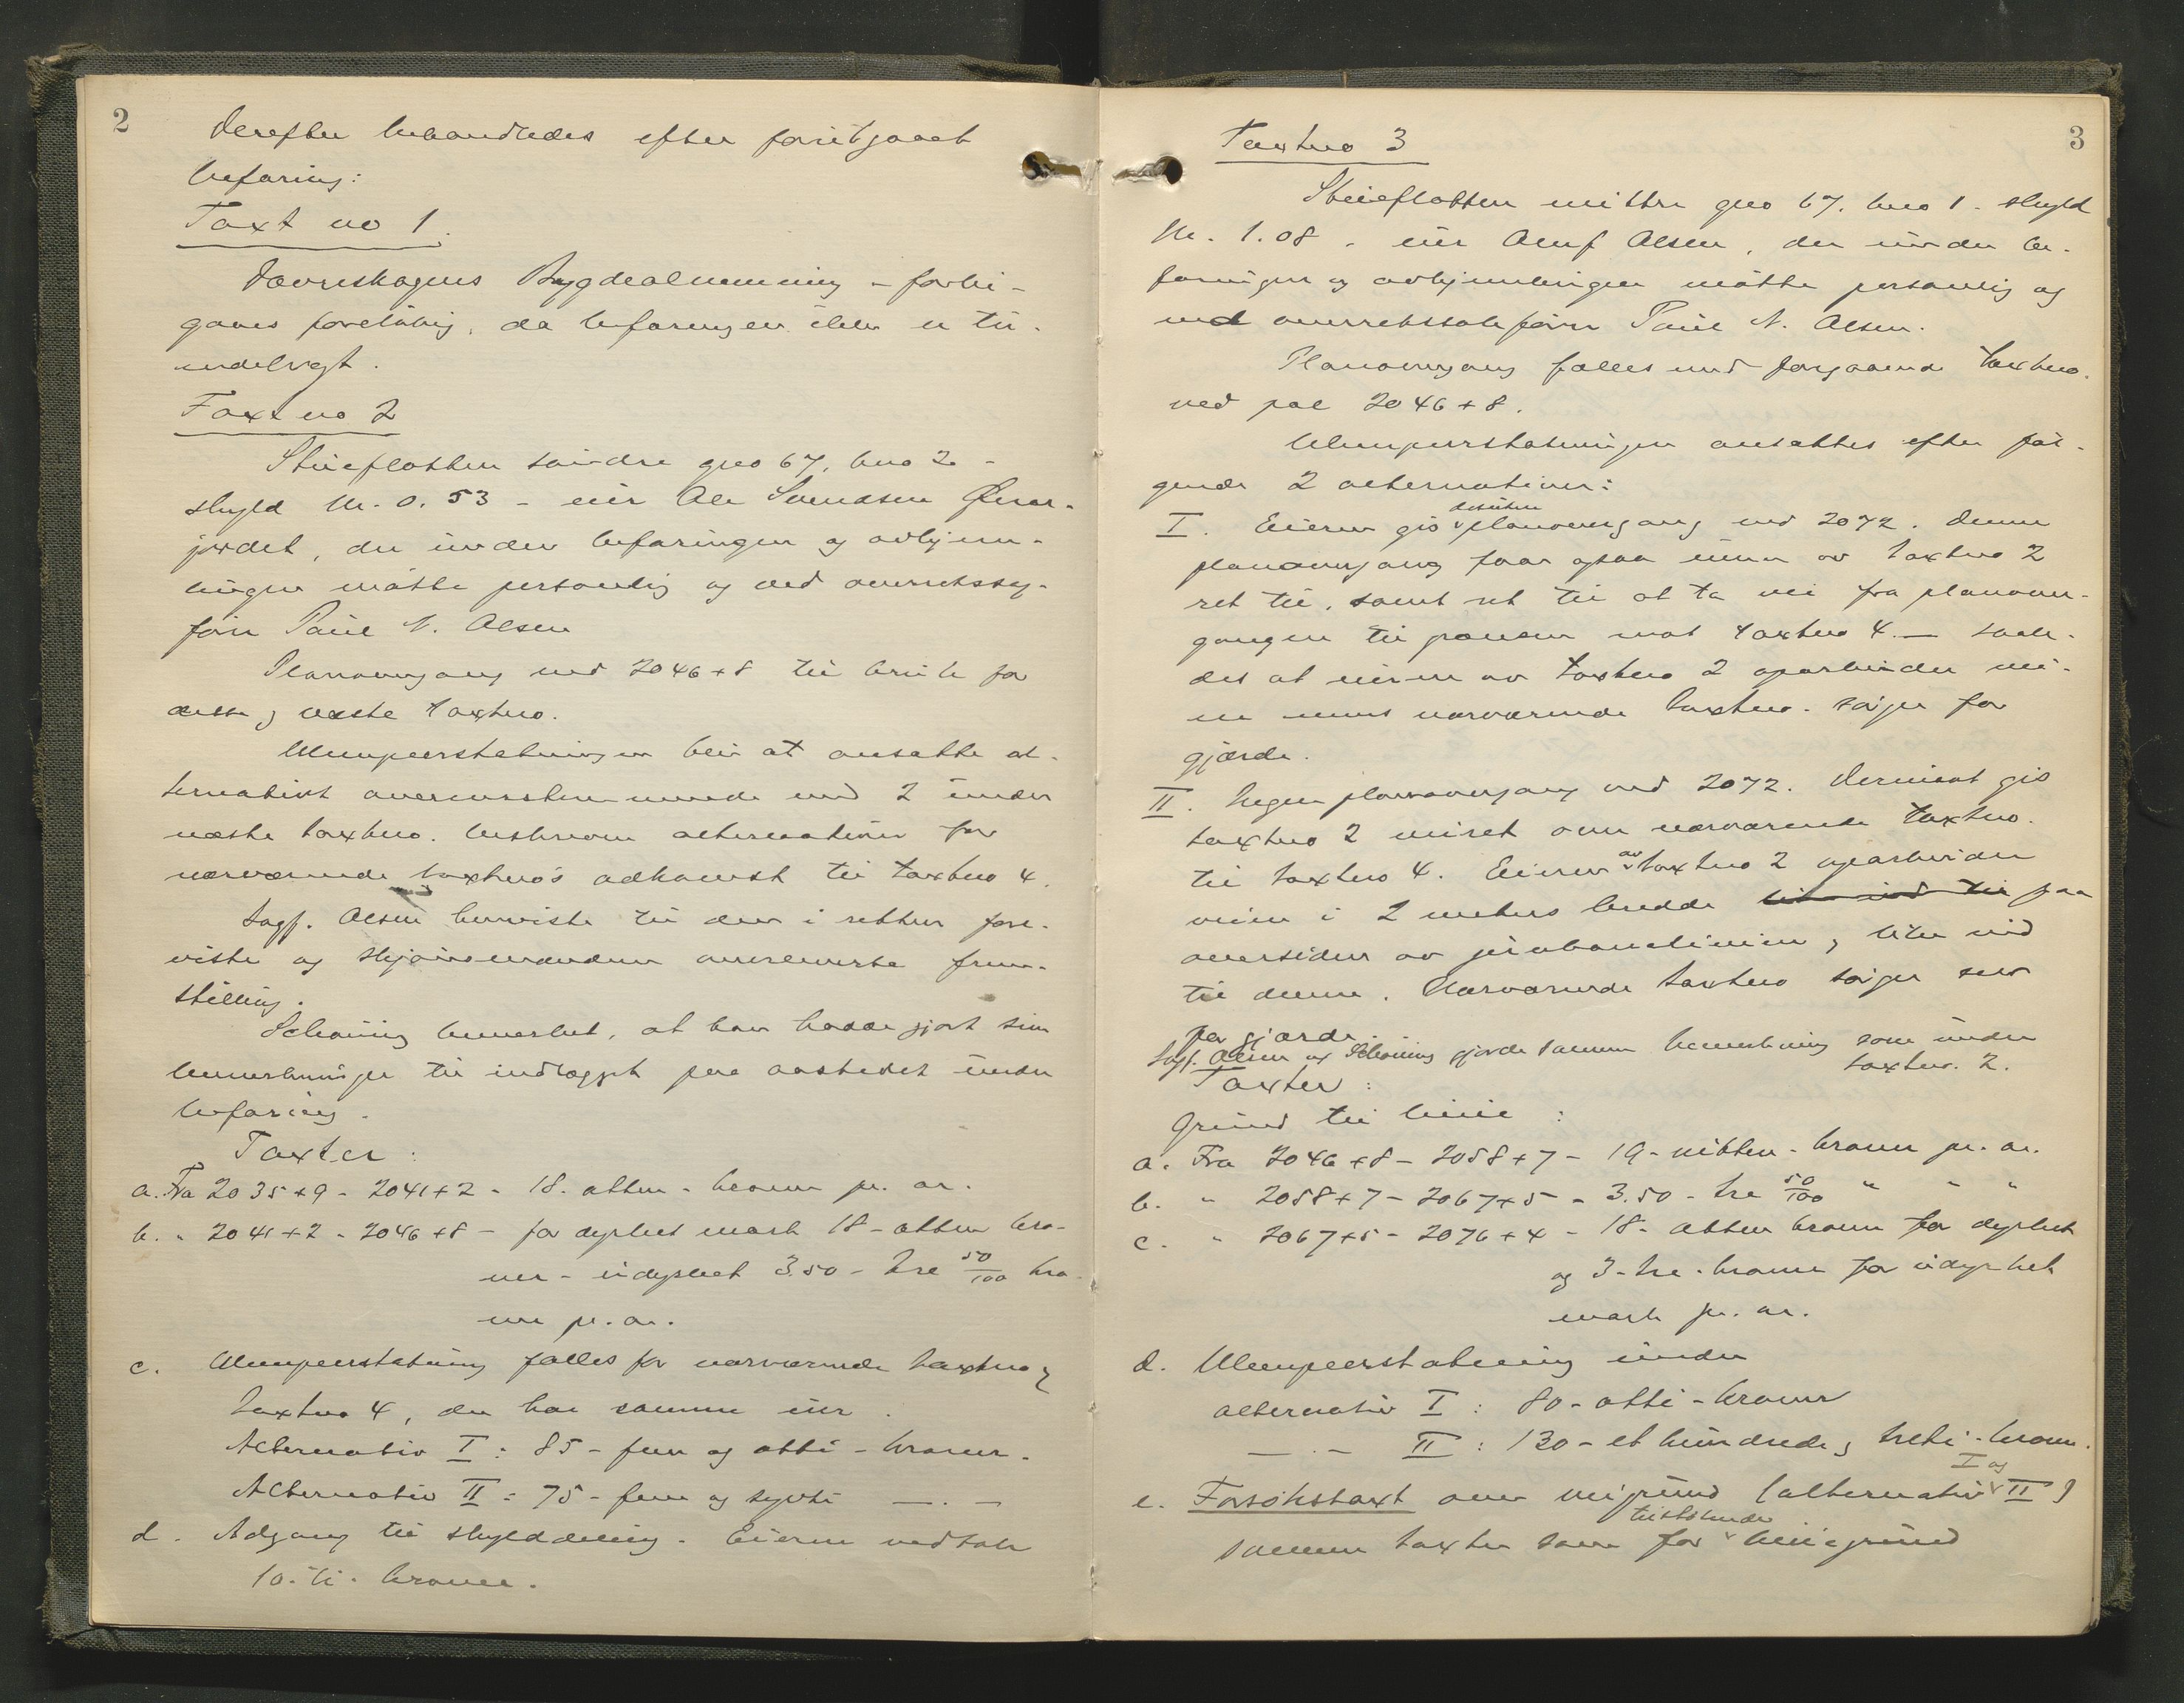 2
Derefter behandledes efter foretgaaet
befaring:
Taxt no 1.
Dovreskogens Bygdealmenning - forbi-
gaaes foreløbig, da befaringen ikke er til-
endebragt.
Taxt no 2
Stueflotten søndre gno 67, bno 2 -
skyld M. 0.53 - eier Ole Svendsen
jordet, der under befaringen og avhjem-
lingen møtte personlig og ved overretssag-
fører Paul N. Olsen
Planovergang ved 2046+8 til bruk for
dette og næste taxtno.
Ulempeerstatningen blir at ansætte al-
ternativt overensstemmende med 2 under
næste taxtno. beskrevne alternativer for
nærværende taxtno's adkomst til taxtno 4.
Sagf. Olsen henviste til den i retten frem-
viste og skjønsmændene overleverte frem-
stilling.
Schøning bemerket, at han hadde gjort sine
bemerkninger til indlægget paa aastedet under
befaring.
Taxter:
a. Fra 2035+9 - 2041+2 - 18. atten - kroner pr. ar.
b. " 2041+2 - 2046+8 - for dyrket mark 18 - atten kro-
ner - udyrket 3.50 - tre 50/100 kro-
ner pr. ar.
c. Ulempeerstatning fælles for nærværende taxtno og
taxtno 4, der har samme eier.
Alternativ I: 85 - fem og otti - kroner.
Alternativ II: 75 - fem og sytti —.—
d. Adgang til skylddeling. Eieren vedtok
10. ti. kroner.
3
Taxtno 3
Stueflotten mittre gno 67. bno 1. skyld
M. 1.08. eier Oluf Olsen, der under be-
faringen og avhjemlingen møtte personlig og
ved overretssakfører Paul N. Olsen.
Planovergang fælles med foregaaende taxtno.
ved pæl 2046+8.
Ulempeerstatningen ansættes efter føl-
gende 2 alternativer:
I. Eieren gis desuten planovergang ved 2072. Denne
planovergang faar ogsaa eieren av taxtno 2
ret til, samt ret til at ta vei fra planover-
gangen til grænsen mot taxtno 4. — saale-
des at eieren av taxtno 2 oparbeider vei-
en mens nærværende taxtno. sørger for
gjærde.
II. Ingen planovergang ved 2072. Derimot gis
taxtno 2 veiret over nærværende taxtno.
til taxtno 4. Eieren av taxtno 2 oparbeider
veien i 2 meters bredde paa
oversiden av jernbanelinien, like ind
til denne. Nærværende taxtno sørger selv
for gjærde.
Sagf. Olsen og Schøning gjorde samme bemerkning som under
taxtno. 2.
Taxter:
Grund til linie:
a. Fra 2046+8 - 2058+7 - 19 - nitten - kroner pr. ar.
b. " 2058+7 - 2067+5 - 3.50 - tre 50/100 " " "
c. " 2067+5 - 2076+4 - 18 - atten kroner for dyrket
og 3 - tre - kroner for udyrket
mark pr. ar.
d. Ulempeerstatning under
alternativ I: 80 - otti - kroner
—.— II: 130 - et hundrede og tretti - kroner.
e. Forsøkstaxt over veigrund (alternativ I og II)
samme taxter som for tilstøtende liniegrund